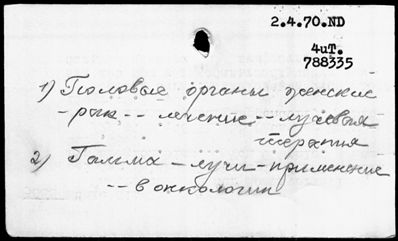 2.4.70.ND
4uT.
788335
1) Половые органы женские
- рак -- лечение -- лучевая
терапия
2) Гамма - лучи - применение
-- в онкологии